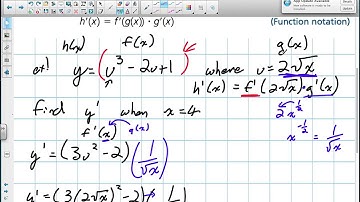 h'(x) = f'(g(x)) · g'(x) (Function notation)
h(x) f(x) g(x)
et! y = (υ³ - 2υ + 1) where υ = 2√x
h'(x) = f'(2√x)·g'(x)
find y' when x = 4
2x^½
f'(x) g(x)
x^-½ = 1/√x
y' = (3υ² - 2)(1/√x)
y' = (3(2√x)² - 2)